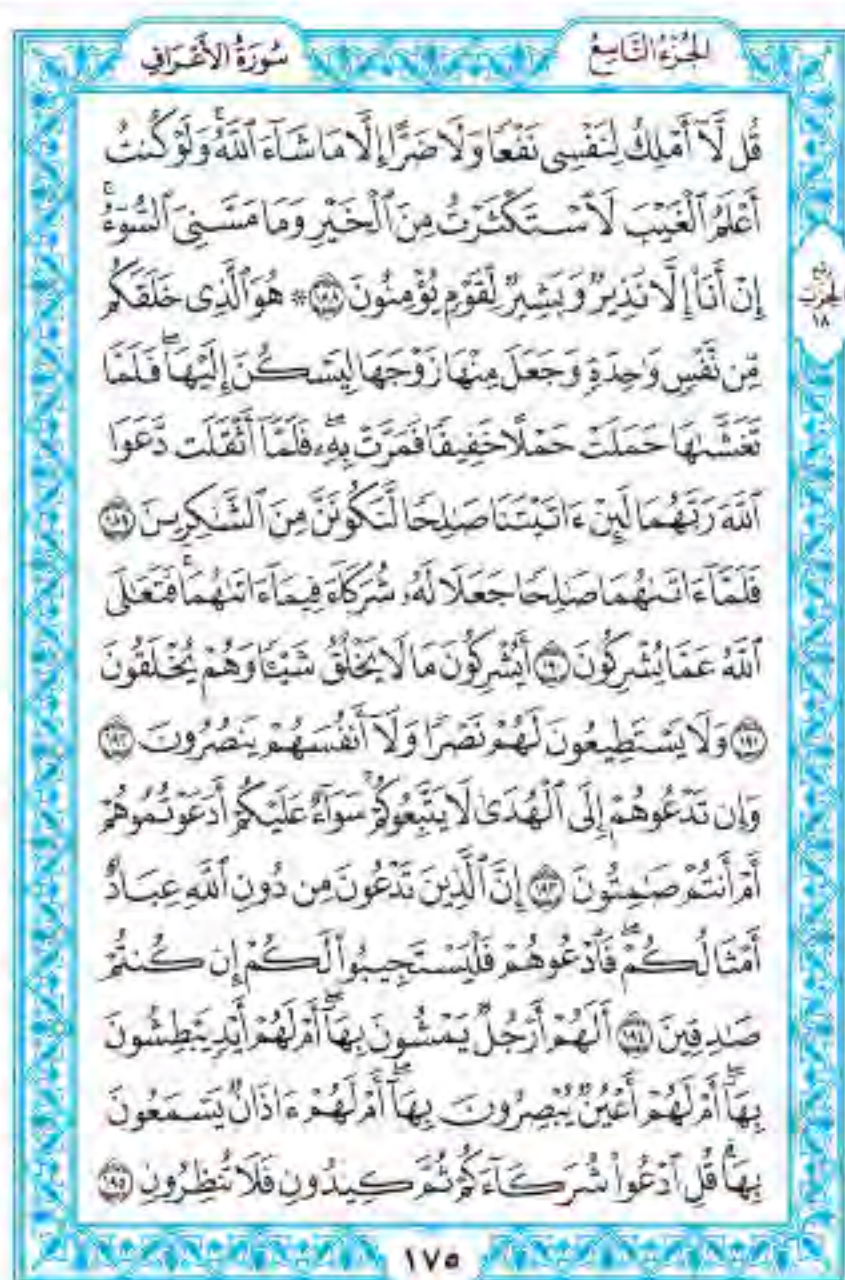 الجُزْءُ التَّاسِعُ
سُورَةُ الأَعْرَافِ
قُل لَّآ أَمْلِكُ لِنَفْسِى نَفْعًا وَلَا ضَرًّا إِلَّا مَا شَآءَ ٱللَّهُۚ وَلَوْ كُنتُ
أَعْلَمُ ٱلْغَيْبَ لَٱسْتَكْثَرْتُ مِنَ ٱلْخَيْرِ وَمَا مَسَّنِىَ ٱلسُّوٓءُۚ
إِنْ أَنَا۠ إِلَّا نَذِيرٌ وَبَشِيرٌ لِّقَوْمٍ يُؤْمِنُونَ ١٨٨ ۞ هُوَ ٱلَّذِى خَلَقَكُم
ربع الحزب ١٨
مِّن نَّفْسٍ وَٰحِدَةٍ وَجَعَلَ مِنْهَا زَوْجَهَا لِيَسْكُنَ إِلَيْهَاۖ فَلَمَّا
تَغَشَّىٰهَا حَمَلَتْ حَمْلًا خَفِيفًا فَمَرَّتْ بِهِۦۖ فَلَمَّآ أَثْقَلَت دَّعَوَا
ٱللَّهَ رَبَّهُمَا لَئِنْ ءَاتَيْتَنَا صَٰلِحًا لَّنَكُونَنَّ مِنَ ٱلشَّٰكِرِينَ ١٨٩
فَلَمَّآ ءَاتَىٰهُمَا صَٰلِحًا جَعَلَا لَهُۥ شُرَكَآءَ فِيمَآ ءَاتَىٰهُمَاۚ فَتَعَٰلَى
ٱللَّهُ عَمَّا يُشْرِكُونَ ١٩٠ أَيُشْرِكُونَ مَا لَا يَخْلُقُ شَيْـًٔا وَهُمْ يُخْلَقُونَ
١٩١ وَلَا يَسْتَطِيعُونَ لَهُمْ نَصْرًا وَلَآ أَنفُسَهُمْ يَنصُرُونَ ١٩٢
وَإِن تَدْعُوهُمْ إِلَى ٱلْهُدَىٰ لَا يَتَّبِعُوكُمْۚ سَوَآءٌ عَلَيْكُمْ أَدَعَوْتُمُوهُمْ
أَمْ أَنتُمْ صَٰمِتُونَ ١٩٣ إِنَّ ٱلَّذِينَ تَدْعُونَ مِن دُونِ ٱللَّهِ عِبَادٌ
أَمْثَالُكُمْۖ فَٱدْعُوهُمْ فَلْيَسْتَجِيبُوا۟ لَكُمْ إِن كُنتُمْ
صَٰدِقِينَ ١٩٤ أَلَهُمْ أَرْجُلٌ يَمْشُونَ بِهَآۖ أَمْ لَهُمْ أَيْدٍ يَبْطِشُونَ
بِهَآۖ أَمْ لَهُمْ أَعْيُنٌ يُبْصِرُونَ بِهَآۖ أَمْ لَهُمْ ءَاذَانٌ يَسْمَعُونَ
بِهَاۗ قُلِ ٱدْعُوا۟ شُرَكَآءَكُمْ ثُمَّ كِيدُونِ فَلَا تُنظِرُونِ ١٩٥
١٧٥